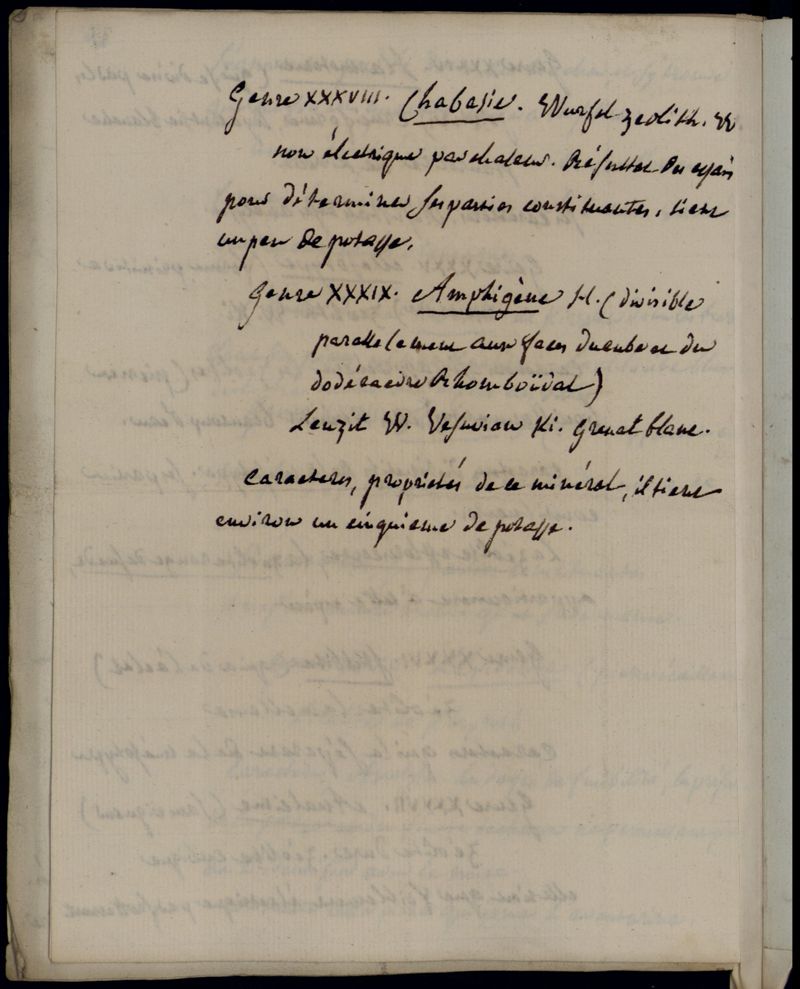 Genre XXXVIII. Chabasie. Wurfel zeolith. W
non électrique par chaleur. Résultat des essais
pour déterminer ses parties constituantes, tient
un peu de potasse.
Genre XXXIX. Amphigène H. (divisible
parallelement aux faces du cube et du
dodécaedre Rhomboïdal)
Leuzit W. Vesuvian Ki. Grenat blanc.
Caracteres, proprietés de ce minéral, il tient
environ un cinquieme de potasse.